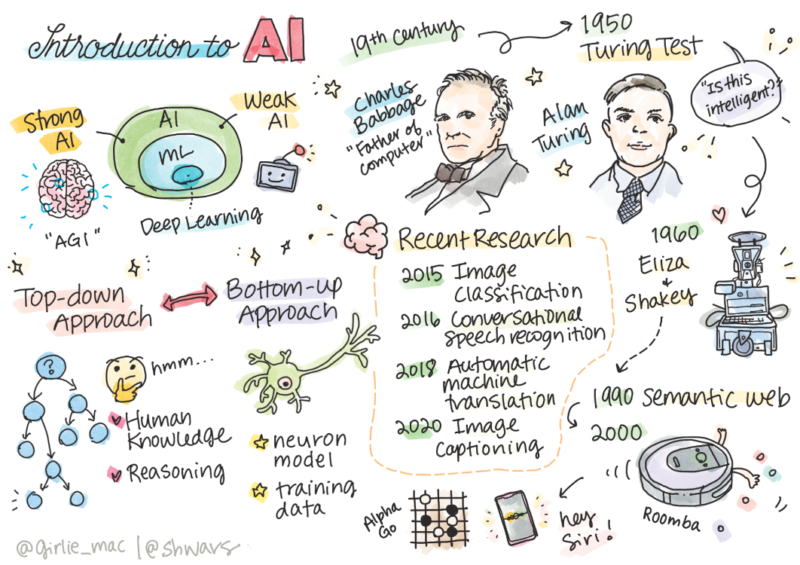 Introduction to AI
Strong
AI
Weak
AI
AI
ML
Deep Learning
"AGI"
19th century
Charles
Babbage
"Father of
computer"
1950
Turing Test
Alan
Turing
"Is this
intelligent?"
1960
Eliza
&
Shakey
Top-down
Approach
Bottom-up
Approach
?
hmm...
Human
Knowledge
Reasoning
neuron
model
training
data
Recent Research
2015 Image
Classification
2016 Conversational
speech recognition
2018 Automatic
machine
translation
2020 Image
Captioning
1990 Semantic web
2000
Roomba
hey
Siri!
Alpha
Go
@girlie_mac | @shwars